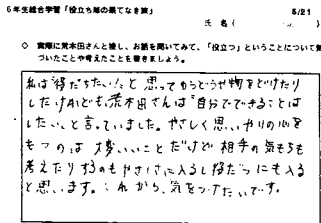 6年生総合学習「役立ち隊の果てなき旅」
5/21
氏名（　　　　　）
◇ 実際に荒木田さんと接し、お話を聞いてみて、「役立つ」ということについて気
づいたことや考えたことを書きましょう。
私は"役だちたい!"と思ってからどうや物をとどけたり
したけれども、荒木田さんは"自分でできることは
したい"と言っていました。やさしく思いやりの心を
もつのは大切いいことだけど相手の気もちも
考えたりするのもやさしさに入るし役だつにも入る
と思います。これから、気をつけたいです。